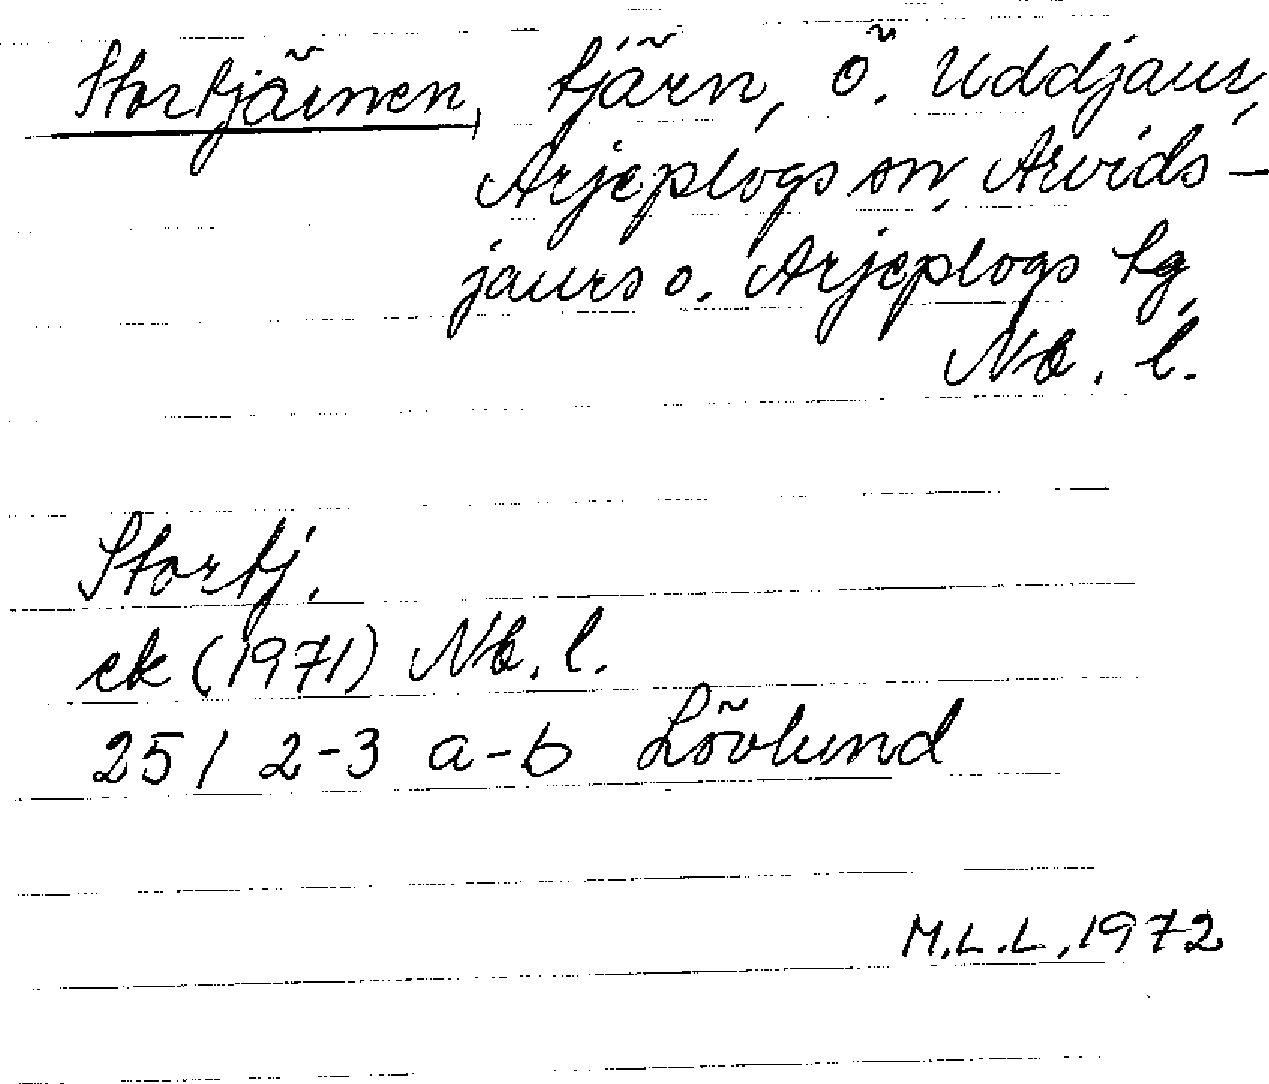 Stortjärnen, tjärn, ö. Uddjaur,
Arjeplogs sn, Arvids-
jaurs o. Arjeplogs tg,
Nb. l.
Stortj.
ek (1971) Nb. l.
25 I 2-3 a-b Lövlund
M.L.L., 1972